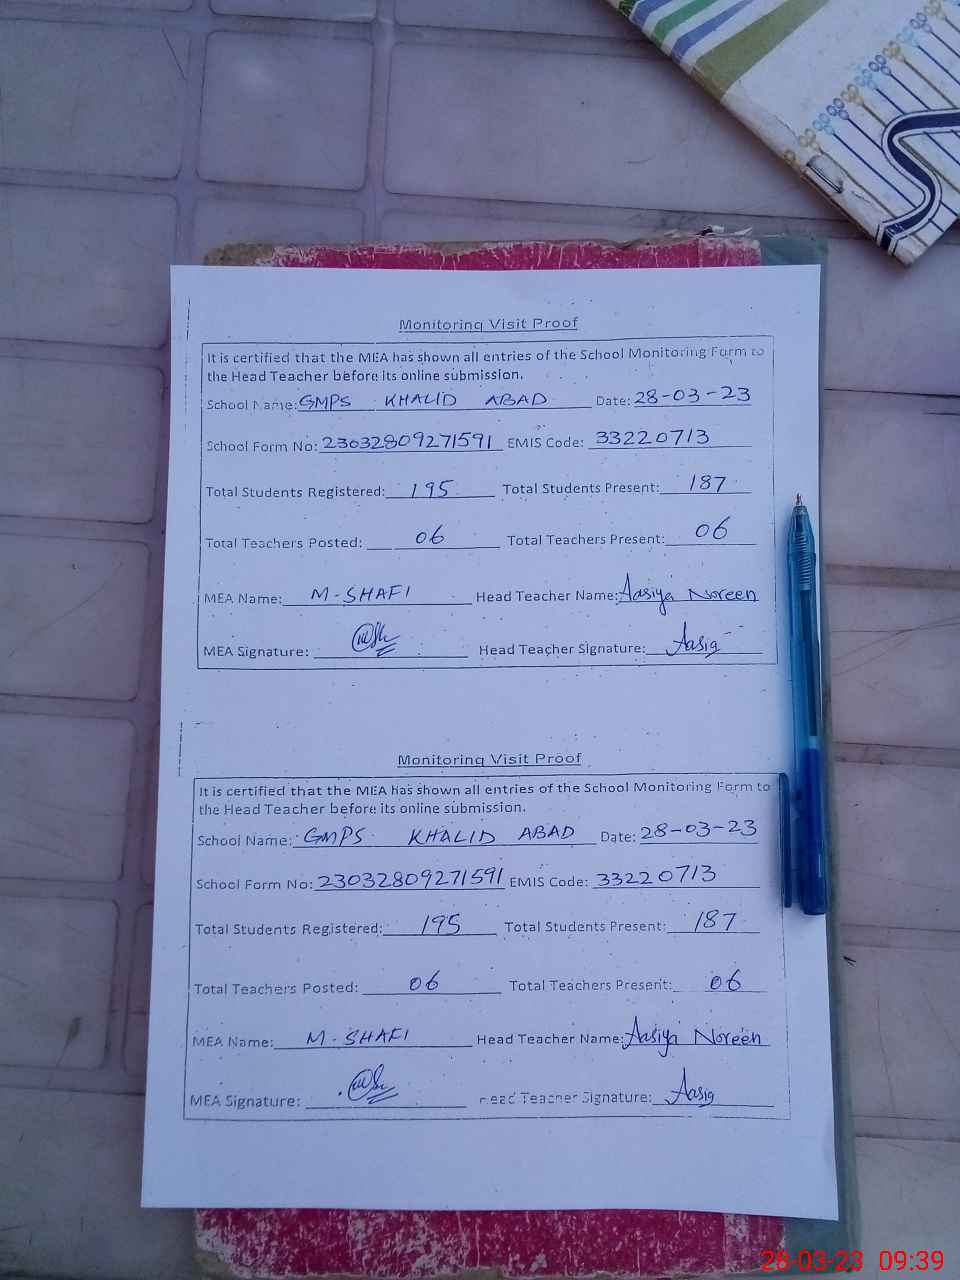 Monitoring Visit Proof
It is certified that the MEA has shown all entries of the School Monitoring Form to
the Head Teacher before its online submission.
School Name: GMPS KHALID ABAD Date: 28-03-23
School Form No: 23032809271591 EMIS Code: 33220713
Total Students Registered: 195 Total Students Present: 187
Total Teachers Posted: 06 Total Teachers Present: 06
MEA Name: M-SHAFI Head Teacher Name: Aasiya Noreen
MEA Signature: Head Teacher Signature: Aasia
Monitoring Visit Proof
It is certified that the MEA has shown all entries of the School Monitoring Form to
the Head Teacher before its online submission.
School Name: GMPS KHALID ABAD Date: 28-03-23
School Form No: 23032809271591 EMIS Code: 33220713
Total Students Registered: 195 Total Students Present: 187
Total Teachers Posted: 06 Total Teachers Present: 06
MEA Name: M-SHAFI Head Teacher Name: Aasiya Noreen
MEA Signature: Head Teacher Signature: Aasia
28-03-23 09:39